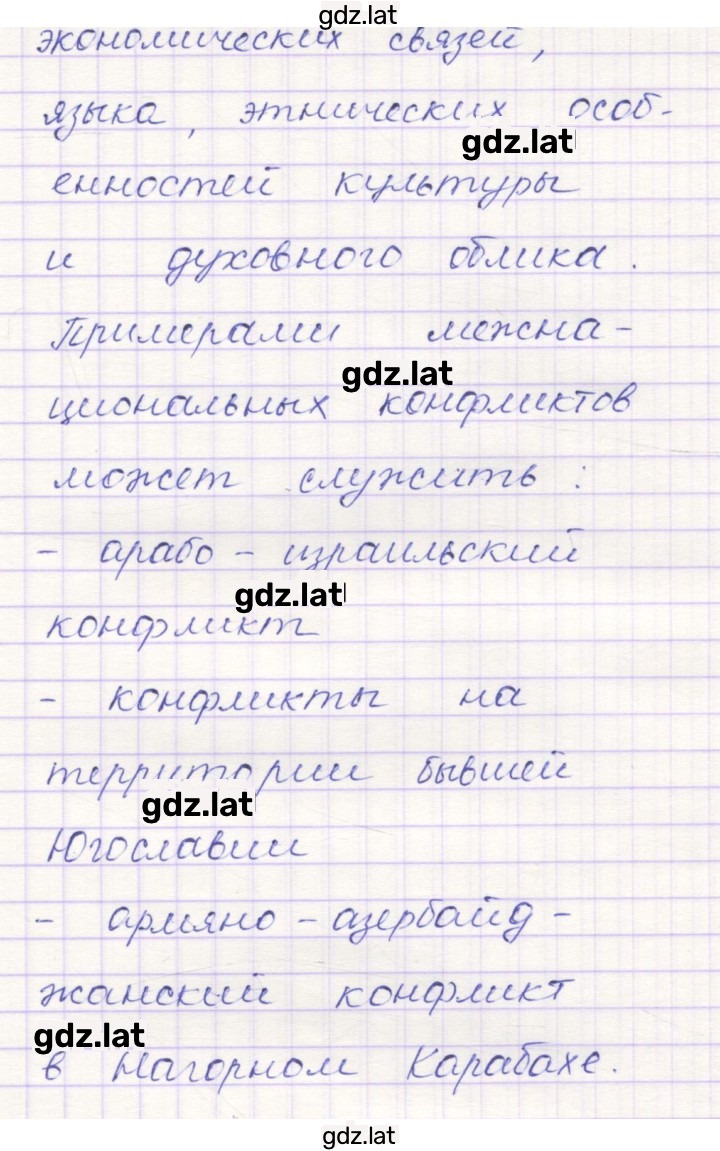 gdz.lat
экономических связей,
языка, этнических особ-
gdz.lat
енностей культуры
и духовного облика.
Примерами межна-
gdz.lat
циональных конфликтов
может служить:
- арабо - израильский
gdz.lat
конфликт
- конфликты на
территории бывшей
gdz.lat
Югославии
- армяно - азербайд-
жанский конфликт
gdz.lat
в Нагорном Карабахе.
gdz.lat